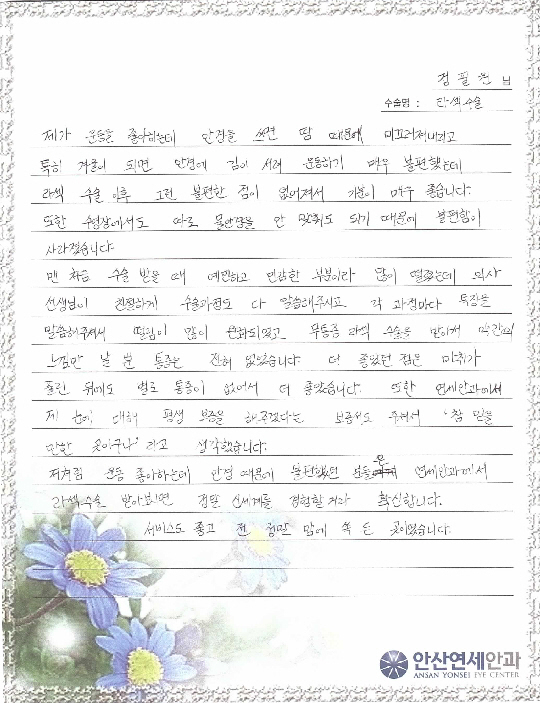 정필원 님
수술명 : 라섹수술
제가 운동을 좋아하는데 안경을 쓰면 땀 때문에 미끄러져내리고
특히 겨울이 되면 안경에 김이 서려 운동하기 매우 불편했는데
라섹 수술 이후 그런 불편한 점이 없어져서 기분이 매우 좋습니다.
또한 수영장에서도 따로 물안경을 안 맞춰도 되기 때문에 불편함이
사라졌습니다.
맨 처음 수술 받을 때 예민하고 민감한 부분이라 많이 떨렸는데 의사
선생님이 친절하게 수술과정도 다 말씀해주시고 각 과정마다 특징을
말씀해주셔서 떨림이 많이 완화되었고 무통증 라섹 수술을 받아서 약간의
느낌만 날 뿐 통증은 전혀 없었습니다. 더 좋았던 점은 마취가
풀린 뒤에도 별로 통증이 없어서 더 좋았습니다. 또한 연세안과에서
제 눈에 대해 평생 보증을 해주겠다는 보증서도 주셔서 '참 믿을
만한 곳이구나' 라고 생각했습니다.
저처럼 운동 좋아하는데 안경 때문에 불편했던 분들은 연세안과에서
라섹수술 받아보시면 정말 신세계를 경험할거라 확신합니다.
서비스도 좋고 전 정말 맘에 쏙 든 곳이었습니다.
안산연세안과
ANSAN YONSEI EYE CENTER